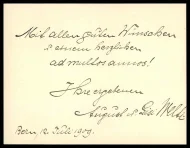 Mit allen guten Wünschen
& einem herzlichen
ad multos annos!
Ihre ergebenen
August &
Bern, 12. Juli 1909.